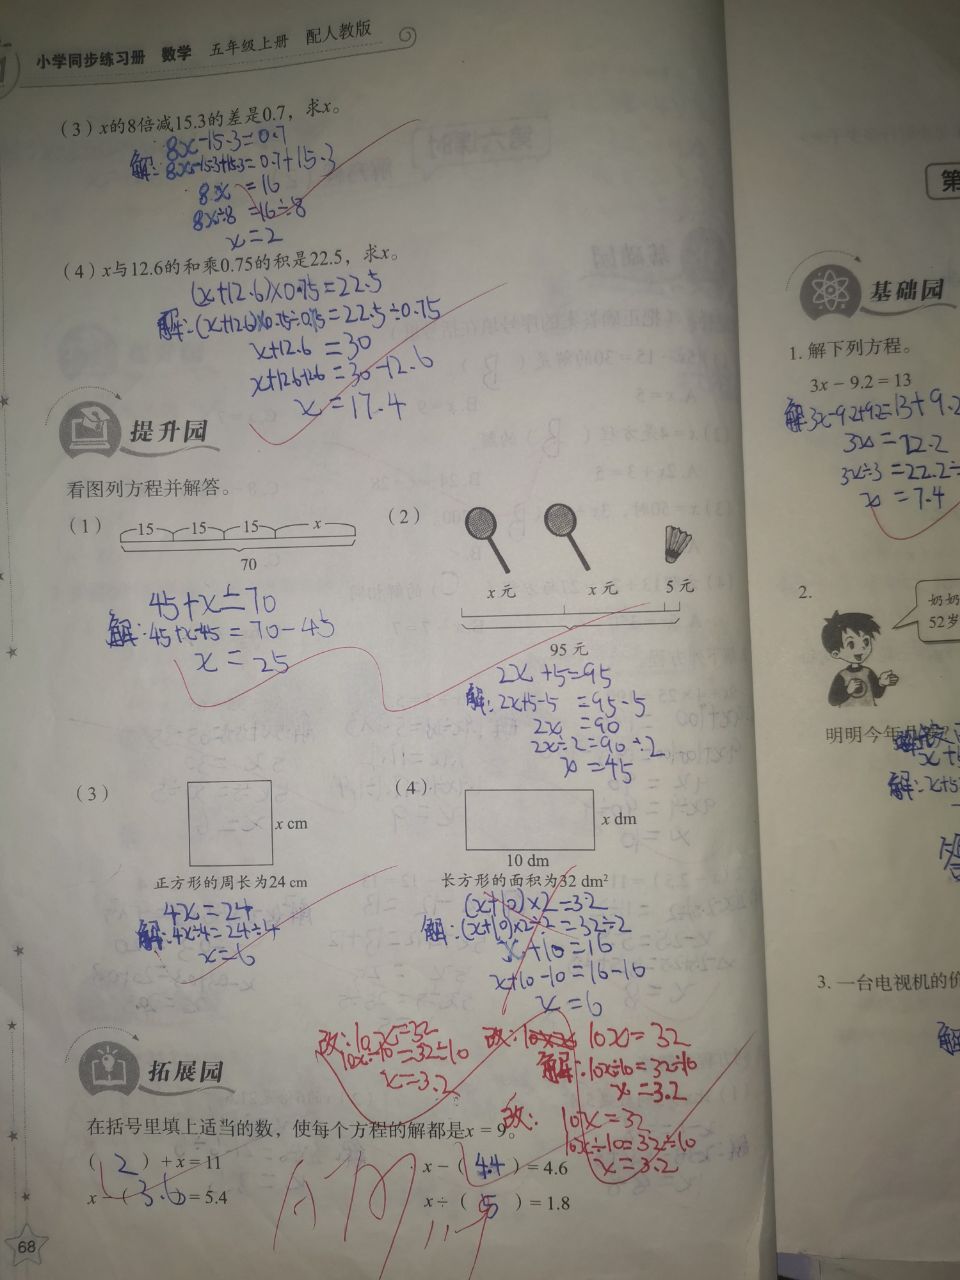 小学同步练习册 数学 五年级上册 配人教版
(3) x的8倍减15.3的差是0.7，求x。
8x-15.3=0.7
解:8x-15.3+15.3=0.7+15.3
8x=16
8x÷8=16÷8
x=2
(4) x与12.6的和乘0.75的积是22.5，求x。
(x+12.6)×0.75=22.5
解:(x+12.6)×0.75÷0.75=22.5÷0.75
x+12.6=30
x+12.6-12.6=30-12.6
x=17.4
提升园
看图列方程并解答。
(1)
15 15 15 x
70
45+x=70
解:45+x-45=70-45
x=25
(2)
x元 x元 5元
95元
2x+5=95
解:2x+5-5=95-5
2x=90
2x÷2=90÷2
x=45
(3)
x cm
正方形的周长为24 cm
4x=24
解:4x÷4=24÷4
x=6
(4)
x dm
10 dm
长方形的面积为32 dm²
(x+10)×2=32
解:(x+10)×2÷2=32÷2
x+10=16
x+10-10=16-10
x=6
改:10x=32
10x÷10=32÷10
x=3.2
改: 10x=32
解:10x÷10=32÷10
x=3.2
改: 10x=32
10x÷10=32÷10
x=3.2
拓展园
在括号里填上适当的数，使每个方程的解都是x=9。
(2)+x=11
x-(4.4)=4.6
x-(3.6)=5.4
x÷(5)=1.8
68
第
基础园
1. 解下列方程。
3x-9.2=13
解:3x-9.2+9.2=13+9.2
3x=22.2
3x÷3=22.2÷
x=7.4
2.
奶奶
52岁
明明今年
解:x+5
答
3. 一台电视机的价
解